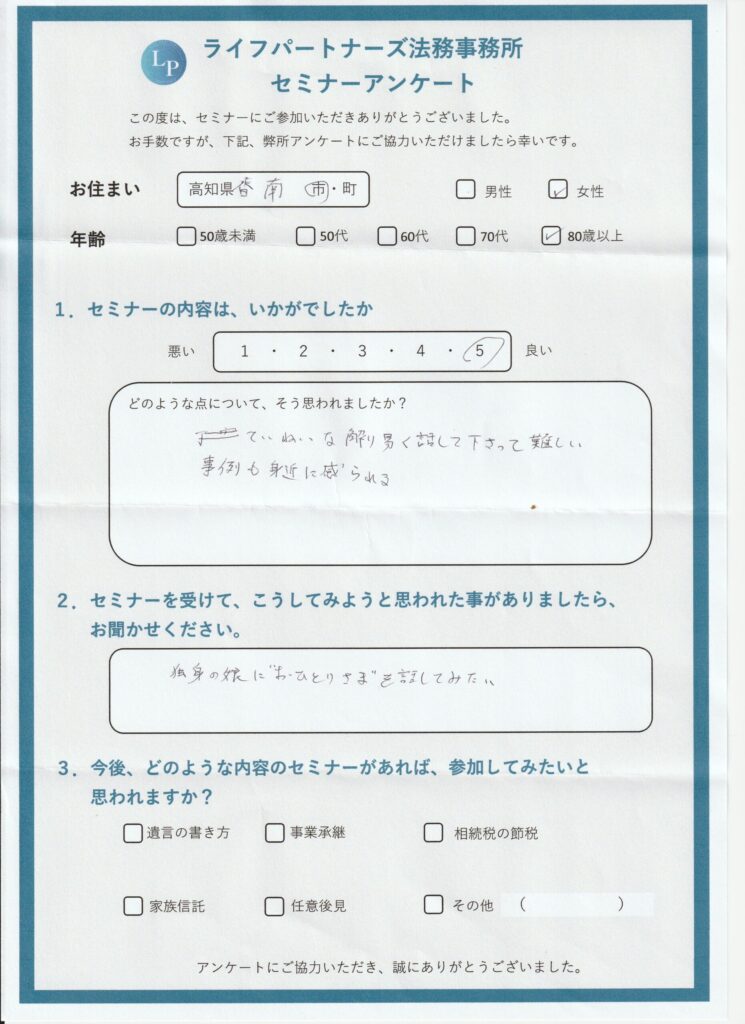 LP
ライフパートナーズ法務事務所
セミナーアンケート
この度は、セミナーにご参加いただきありがとうございました。
お手数ですが、下記、弊所アンケートにご協力いただけましたら幸いです。
お住まい 高知県香南 市・町 □ 男性 ☑ 女性
年齢 □ 50歳未満 □ 50代 □ 60代 □ 70代 ☑ 80歳以上
1．セミナーの内容は、いかがでしたか
悪い 1 ・ 2 ・ 3 ・ 4 ・ 5 良い
どのような点について、そう思われましたか？
ていねいな解り易く話して下さって難しい
事例も身近に感じられる
2．セミナーを受けて、こうしてみようと思われた事がありましたら、
お聞かせください。
独身の娘に"おひとりさま"を話してみたい
3．今後、どのような内容のセミナーがあれば、参加してみたいと
思われますか？
□ 遺言の書き方 □ 事業承継 □ 相続税の節税
□ 家族信託 □ 任意後見 □ その他 （ ）
アンケートにご協力いただき、誠にありがとうございました。